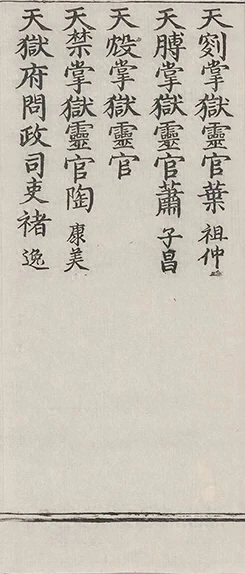 天剡掌獄靈官葉祖仲
天膊掌獄靈官蕭子昌
天掌獄靈官
天禁掌獄靈官陶康美
天獄府問政司吏褚逸